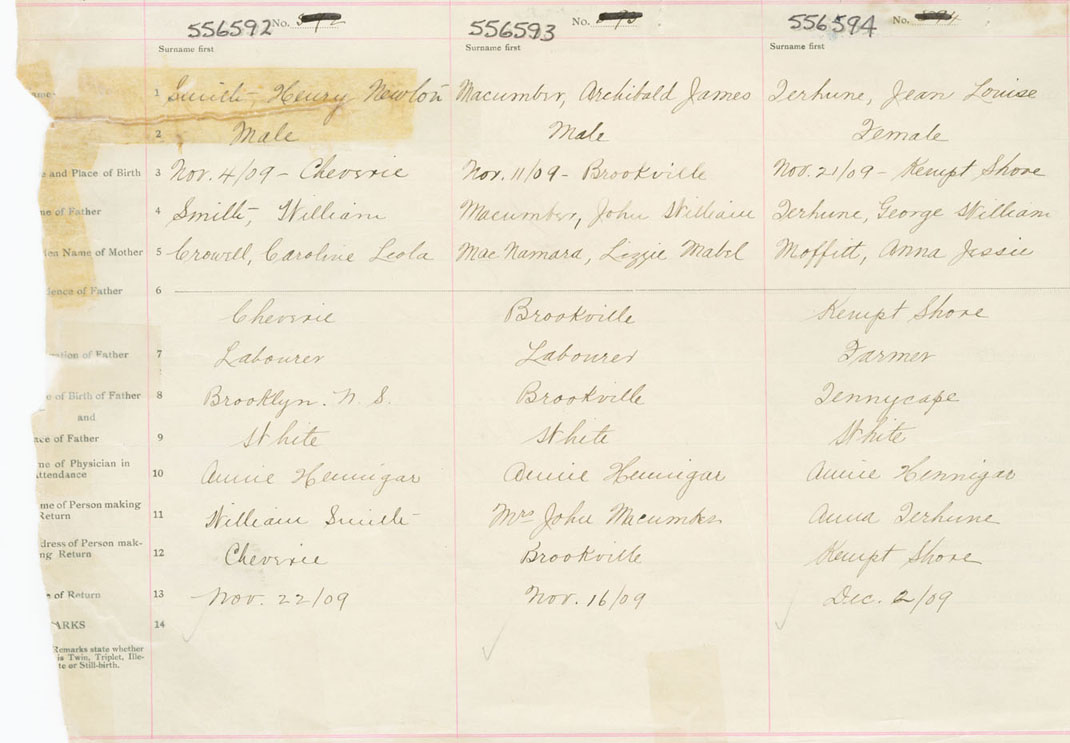 556592 No.
556593 No.
556594 No.
Surname first Surname first Surname first
1 Smith, Henry Newton Macumber, Archibald James Terhune, Jean Louise
2 Male Male Female
e and Place of Birth 3 Nov. 4/09 - Cheverie Nov. 11/09 - Brookville Nov. 21/09 - Kempt Shore
me of Father 4 Smith, William Macumber, John William Terhune, George William
den Name of Mother 5 Crowell, Caroline Leola MacNamara, Lizzie Mabel Moffitt, Anna Jessie
dence of Father 6
Cheverie Brookville Kempt Shore
ation of Father 7 Labourer Labourer Farmer
e of Birth of Father 8 Brooklyn. N. S. Brookville Tennycape
and
ace of Father 9 White White White
me of Physician in
Attendance 10 Annie Hennigar Annie Hennigar Annie Hennigar
me of Person making
Return 11 William Smith Mrs John Macumber Anna Terhune
dress of Person mak-
ng Return 12 Cheverie Brookville Kempt Shore
e of Return 13 Nov. 22/09 Nov. 16/09 Dec. 2/09
ARKS 14
Remarks state whether
is Twin, Triplet, Ille-
te or Still-birth.